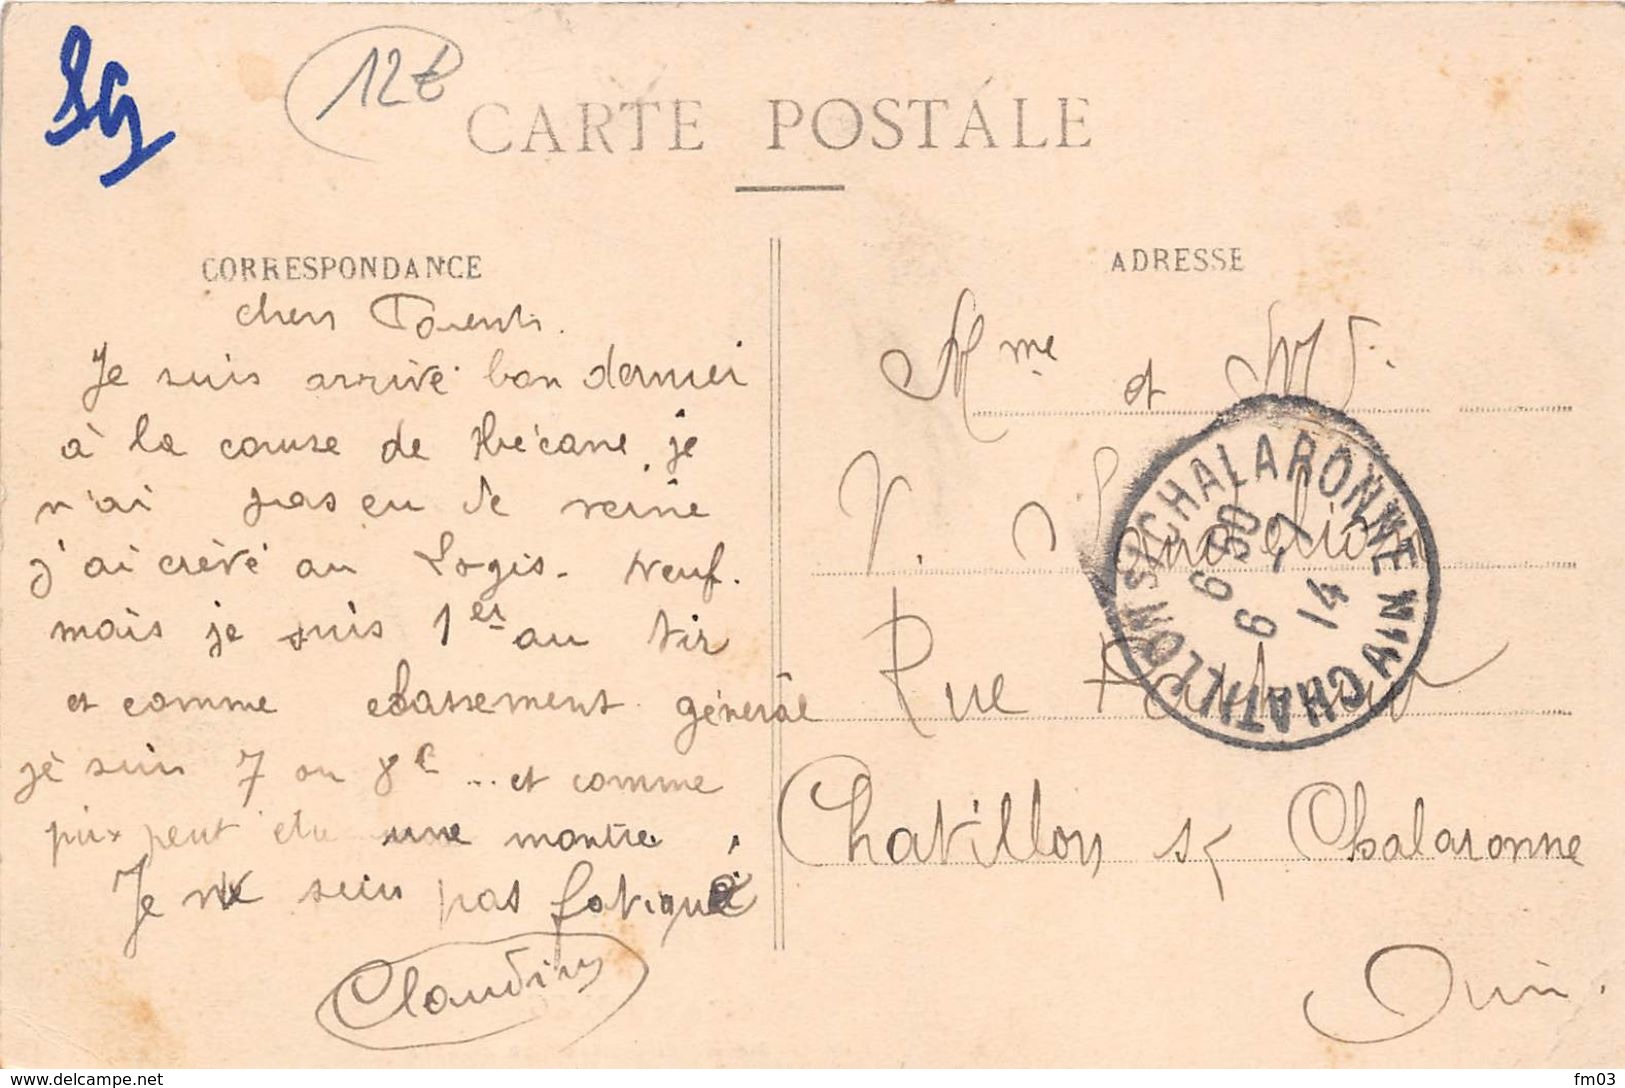 Sg
12€
CARTE POSTALE
CORRESPONDANCE
chers Parents.
Je suis arrivé bon dernier
à la course de Mécane, je
n'ai pas eu de veine
j'ai crévé au Logis-Neuf.
mais je suis 1er au tir
et comme classement général
je suis 7 ou 8e ... et comme
prix peut etre une montre.
Je ne suis pas fatigué
Claudius
ADRESSE
Mme et Mr.
V.
Rue
Chatillon s/ Chalaronne
Ain.
CHATILLON S/CHALARONNE AIN
6 50
6 -7
14
delcampe.net
fm03